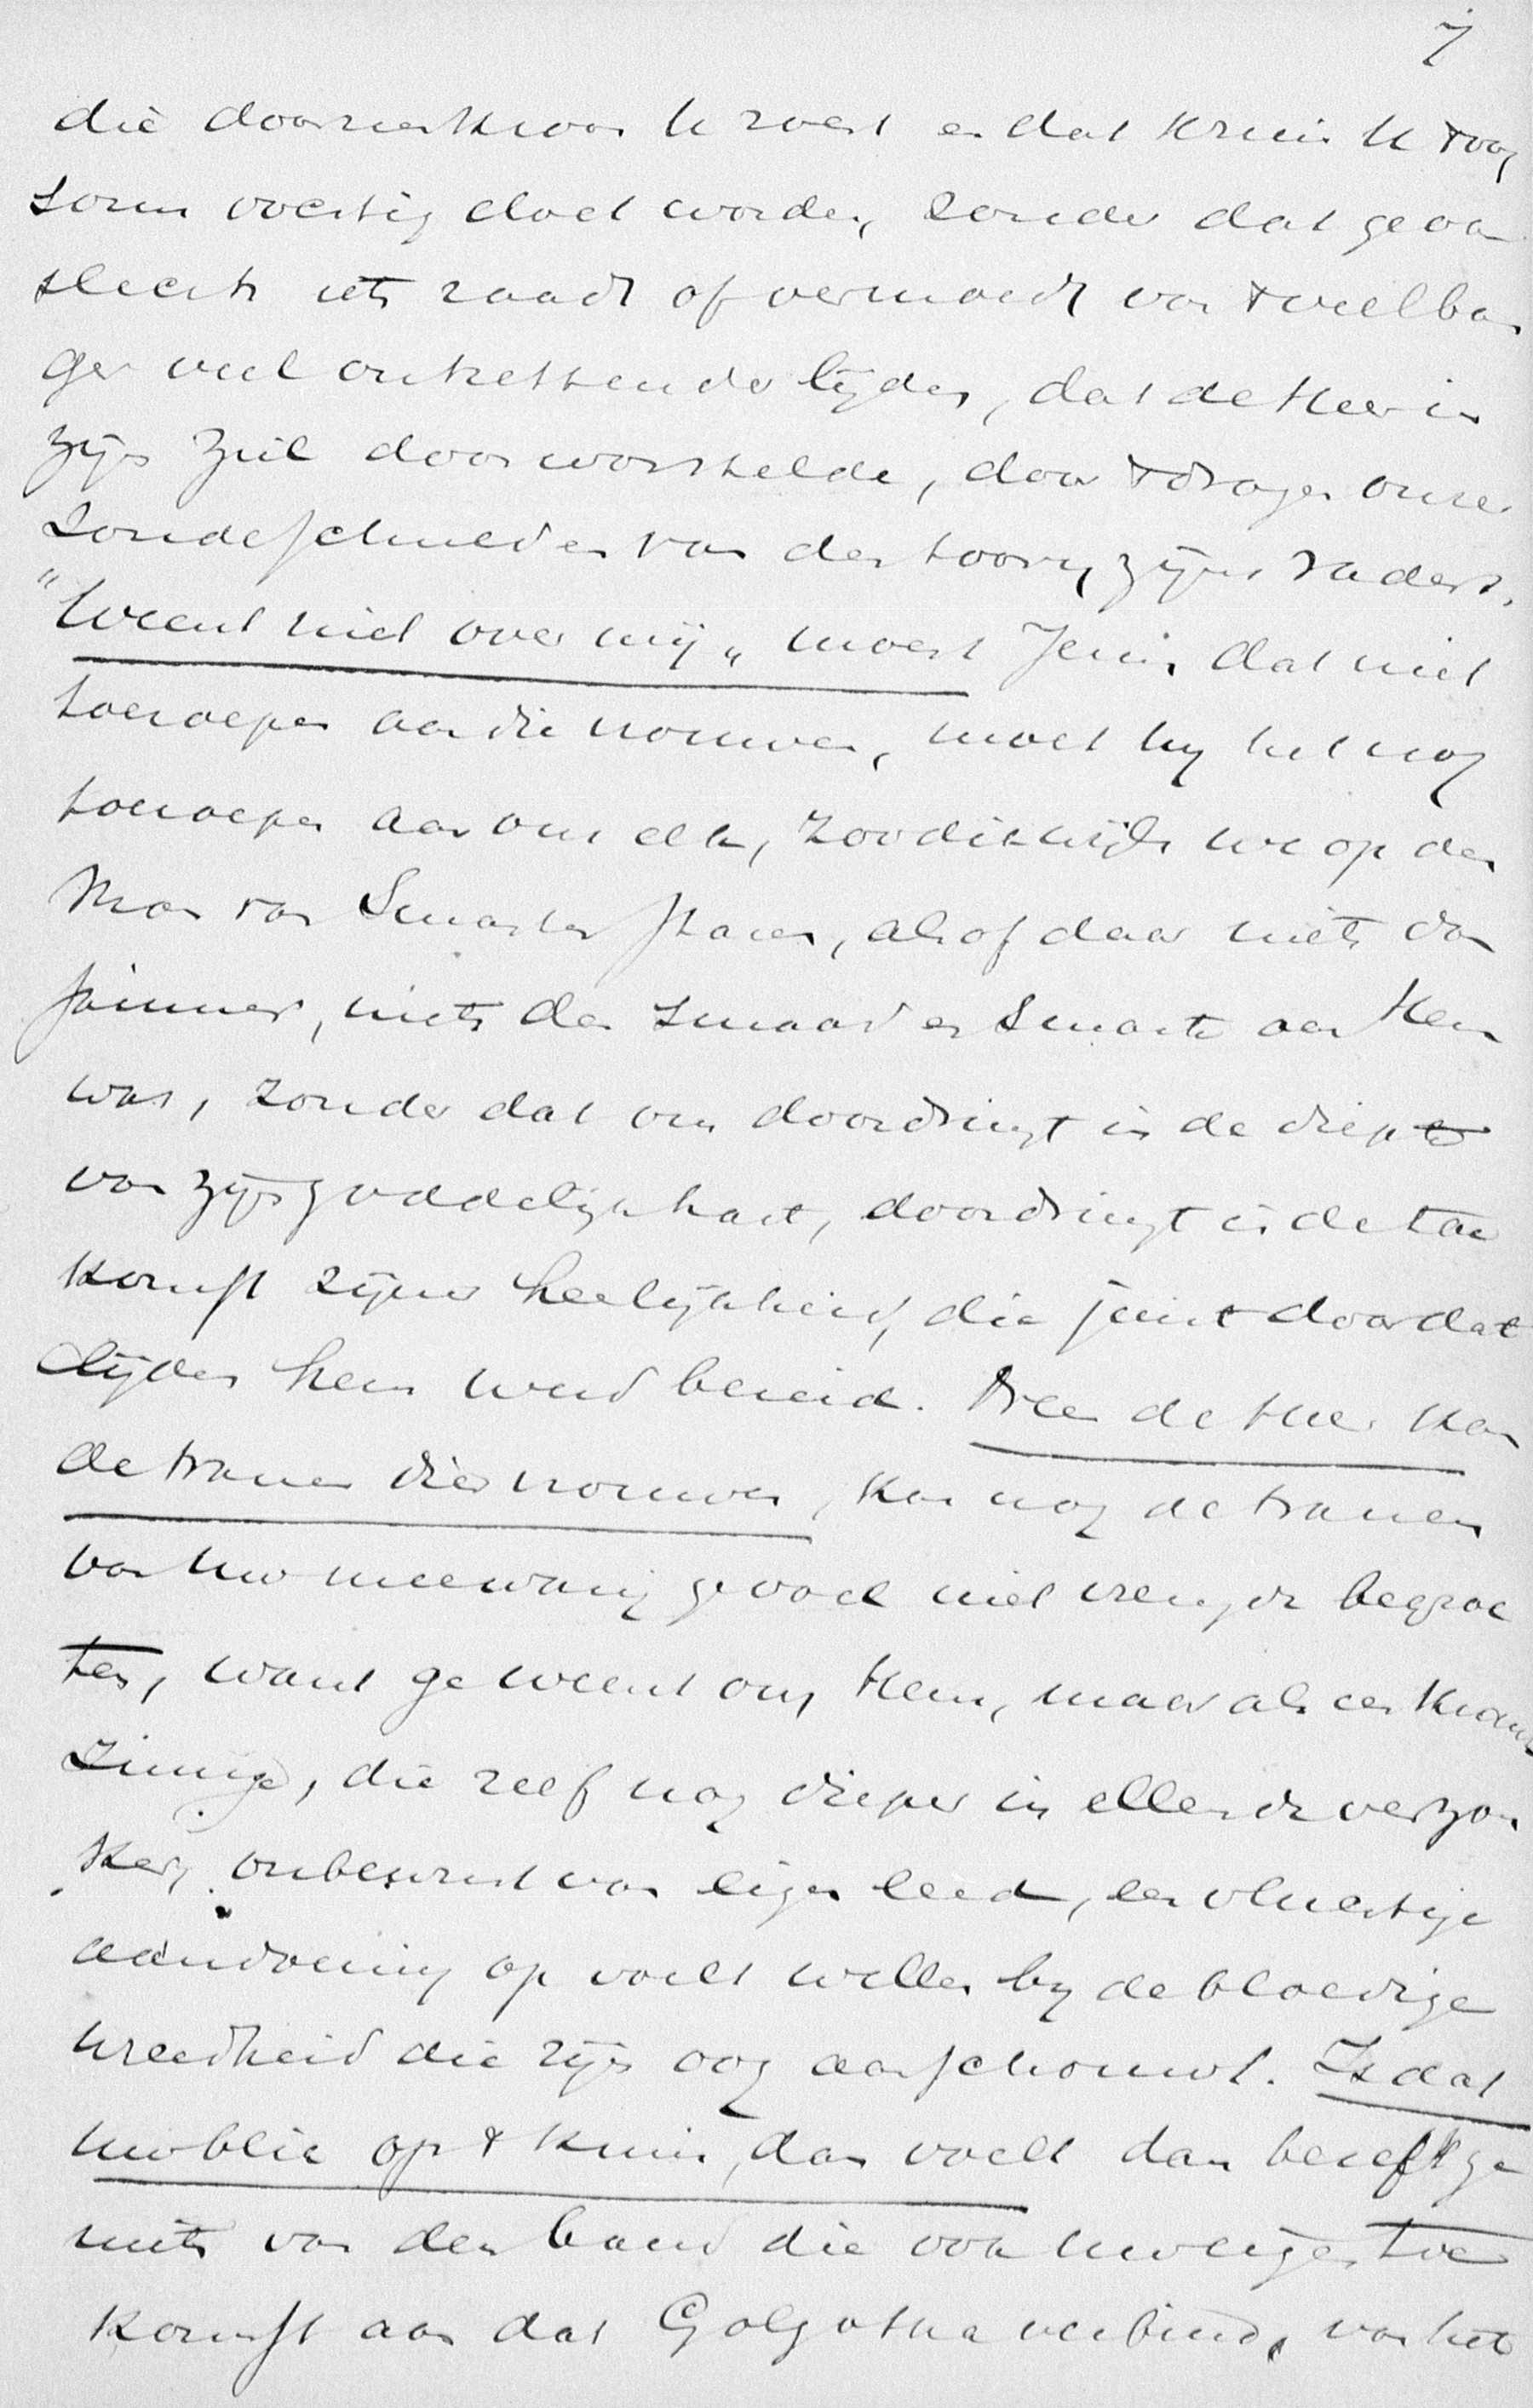 7
die doornenkroon U wat en dat kruis U t oog
soms vochtig doet worden, zonder dat ge ook
slechts iets raadt of vermoedt van t veelban
ger veel ontzettender lijden, dat de Heer in
zijn ziel doorworstelde, door t dragen onzer
zondeschuld en van den toorn zijns Vaders.
"Weent niet over mij" moest Jezus dat niet
toeroepen aan die vrouwen, moet hij het nog
toeroepen aan ons elk, zoodikwijls we op den
Man van Smarten staren, alsof daar niets dan
jammer, niets dan smaad en smarte aan Hem
was, zonder dat ons doordringt in de diepte
van zijn goddelijk hart, doordringt in de toe
komst zijner heerlijkheid, die juist door dat
lijden hem werd bereid. Neen de Heer kon
de tranen dier vrouwen, kan nog de tranen
van uw meewarig gevoel niet vreugde begroe
ten, want ge weent om Hem, maar als een krank
zinnige, die zelf nog dieper in ellende verzon
ken, onbewust van eigen leed, een vluchtige
aandoening op voelt wellen bij de bloedige
wreedheid die zijn oog aanschouwt. Is dat
uw blik op t kruis, dan voelt dan beseft ge
niets van den band die ook uw eigen toe
komst aan dat Golgotha verbindt, van het